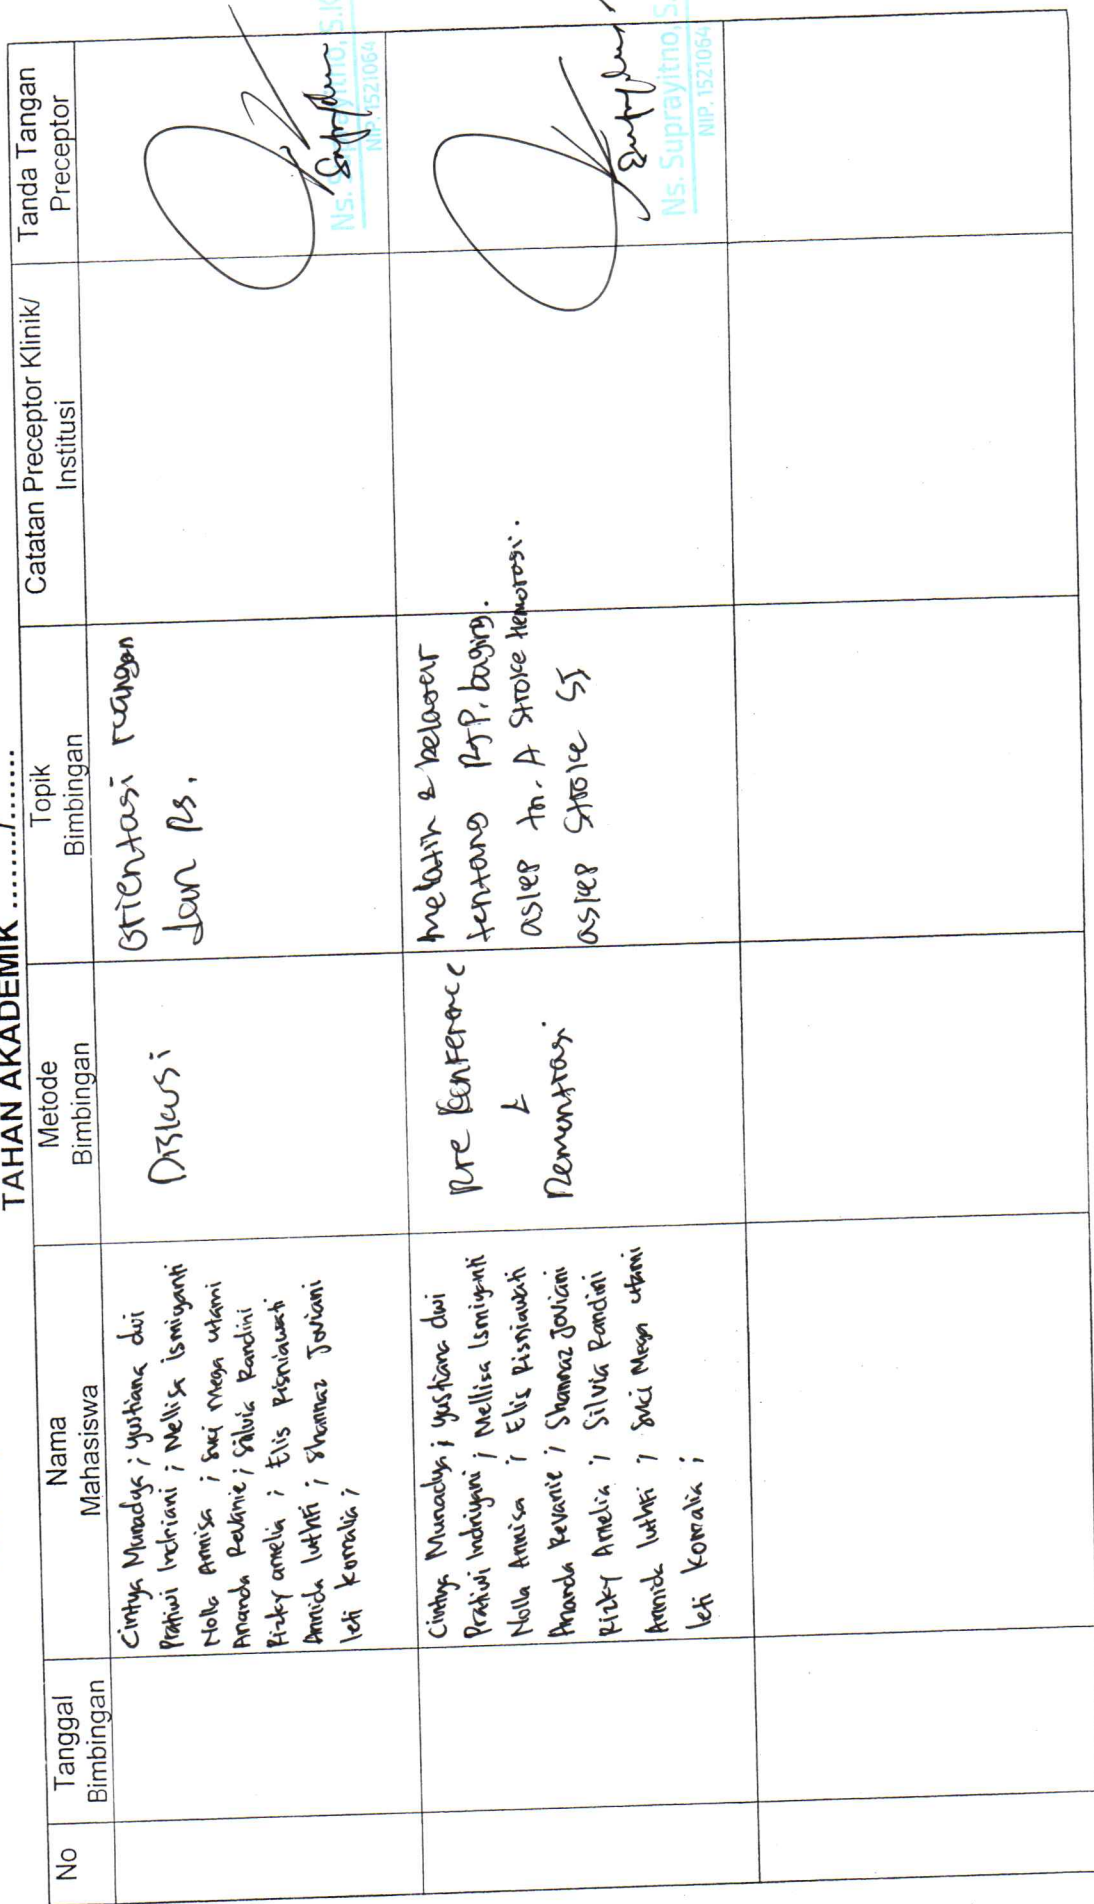 TAHAN AKADEMIK ......../.......
No
Tanggal
Bimbingan
Nama
Mahasiswa
Metode
Bimbingan
Topik
Bimbingan
Catatan Preceptor Klinik/
Institusi
Tanda Tangan
Preceptor
Cintya Munadya ; yustiana dwi
Pratiwi Indriani ; Mellisa ismiyanti
Nolla Annisa ; Suci Mega utami
Ananda Revanie ; Silvia Randini
Rizky amelia ; Elis Risniawati
Annida luthfi ; Shannaz Joviani
leti komalia ;
Diskusi
Orientasi ruangan
dan RS.
Ns. Suprayitno, S.K
NIP. 1521064
Cintya Munadya ; yustiana dwi
Pratiwi Indriyani ; Mellisa Ismiyanti
Nolla Annisa ; Elis Risniawati
Ananda Revanie ; Shannaz Joviani
Rizky Amelia ; Silvia Randini
Annida luthfi ; Suci Mega utami
leti komalia ;
Pre Conference
&
Demontrasi
melatih & belajar
tentang RJP, baging.
askep tn. A Stroke Hemoragi.
askep Stroke SJ
Ns. Suprayitno, S.
NIP. 1521064